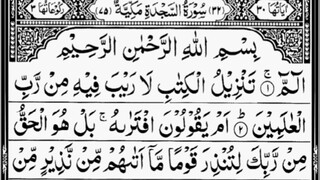 اٰیَاتُهَا ٣٠ (٣٢) سُوْرَةُ السَّجْدَةِ مَكِّيَّةٌ (٧٥) رُكُوْعَاتُهَا ٣
بِسْمِ اللّٰهِ الرَّحْمٰنِ الرَّحِيْمِ
الٓمّٓ ۚ﴿١﴾ تَنْزِيْلُ الْكِتٰبِ لَا رَيْبَ فِيْهِ مِنْ رَّبِّ
الْعٰلَمِيْنَ ﴿٢﴾ اَمْ يَقُوْلُوْنَ افْتَرٰىهُ ۚ بَلْ هُوَ الْحَقُّ
مِنْ رَّبِّكَ لِتُنْذِرَ قَوْمًا مَّاۤ اَتٰىهُمْ مِّنْ نَّذِيْرٍ مِّنْ